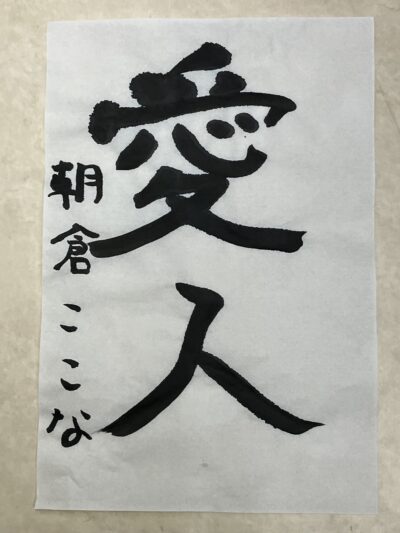 愛人
朝倉ここな